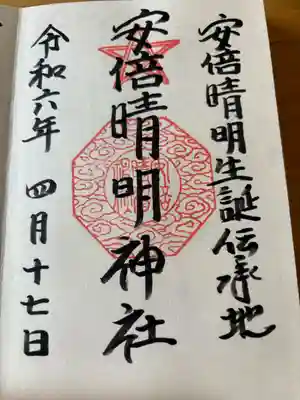 安倍晴明生誕伝承地
安倍晴明神社
令和六年 四月十七日